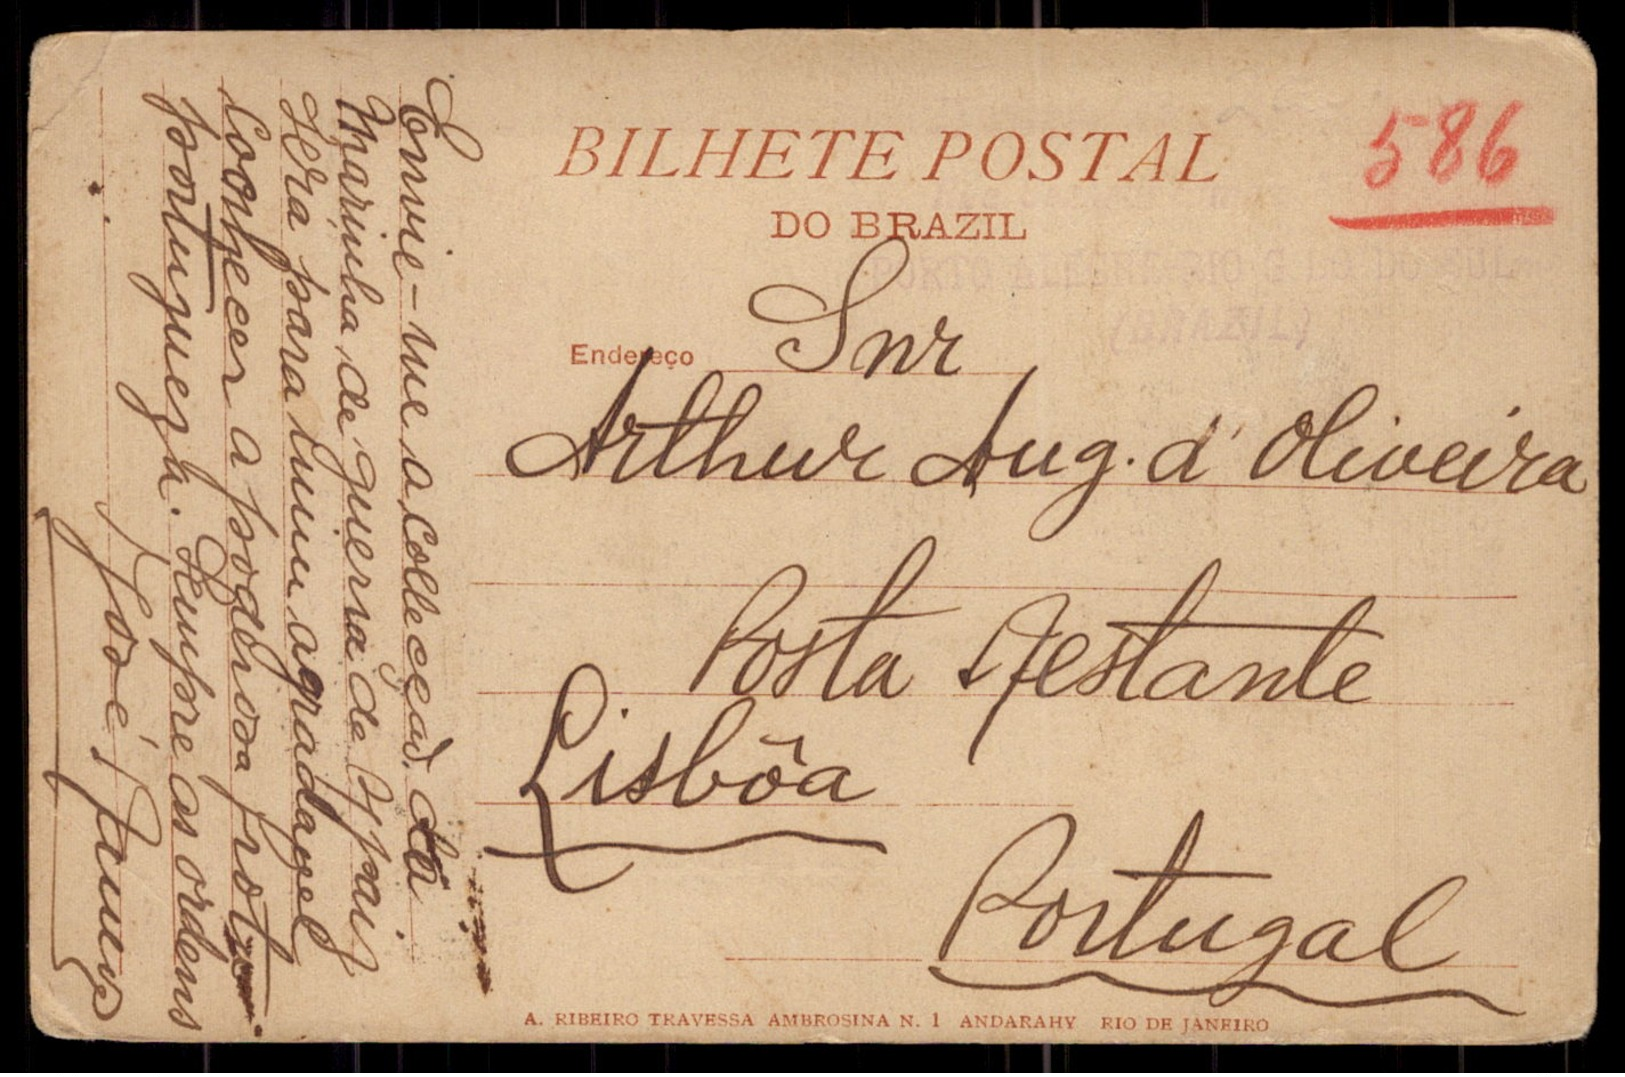 BILHETE POSTAL
DO BRAZIL
586
PORTO ALEGRE RIO G DO SUL
(BRAZIL)
Endereço
Snr
Arthur Aug. d' Oliveira
Posta Restante
Lisbôa
Portugal
A. RIBEIRO TRAVESSA AMBROSINA N. 1 ANDARAHY RIO DE JANEIRO
Envie-me a collecção da
Marinha de guerra de s/ paiz
será para mim agradavel
conhecer a poderosa frota
portugueza. Sempre as ordens
José